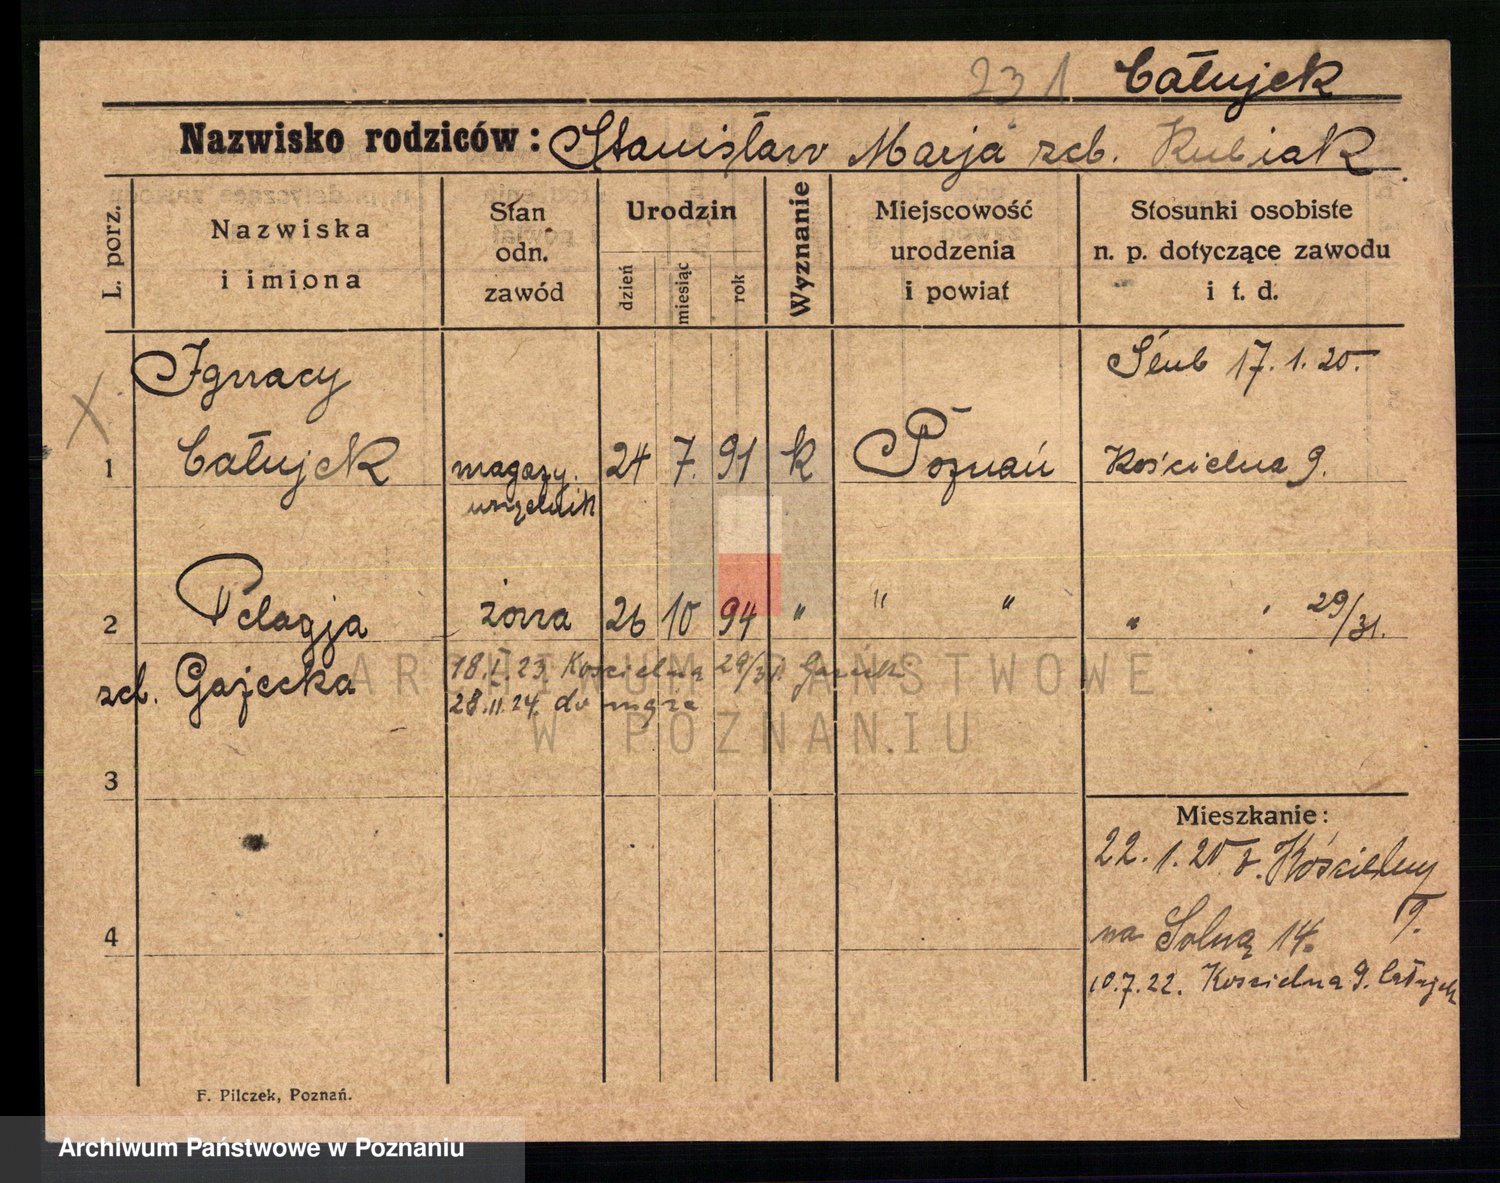 231 Całujek
Nazwisko rodziców: Stanisław Marja zeb. Kubiak
L. porz.
Nazwiska
i imiona
Stan
odn.
zawód
Urodzin
dzień
miesiąc
rok
Wyznanie
Miejscowość
urodzenia
i powiat
Stosunki osobiste
n. p. dotyczące zawodu
i t. d.
X
1
Ignacy
Całujek
magazy.
urzędnik
24 7. 91 k Poznań
Ślub 17.1.20.
Kościelna 9.
2
Pelagja
żona 26 10 94 " " " " " 29/31.
zeb. Gajecka
18.I.23. Kościelna 29/31
28.11.24. do męża
3
4
Mieszkanie:
22.1.20 z. Kościelny
9.
na Solną 14.
10.7.22. Kościelna 9. Całujek
F. Pilczek, Poznań.
ARCHIWUM PAŃSTWOWE
W POZNANIU
Archiwum Państwowe w Poznaniu